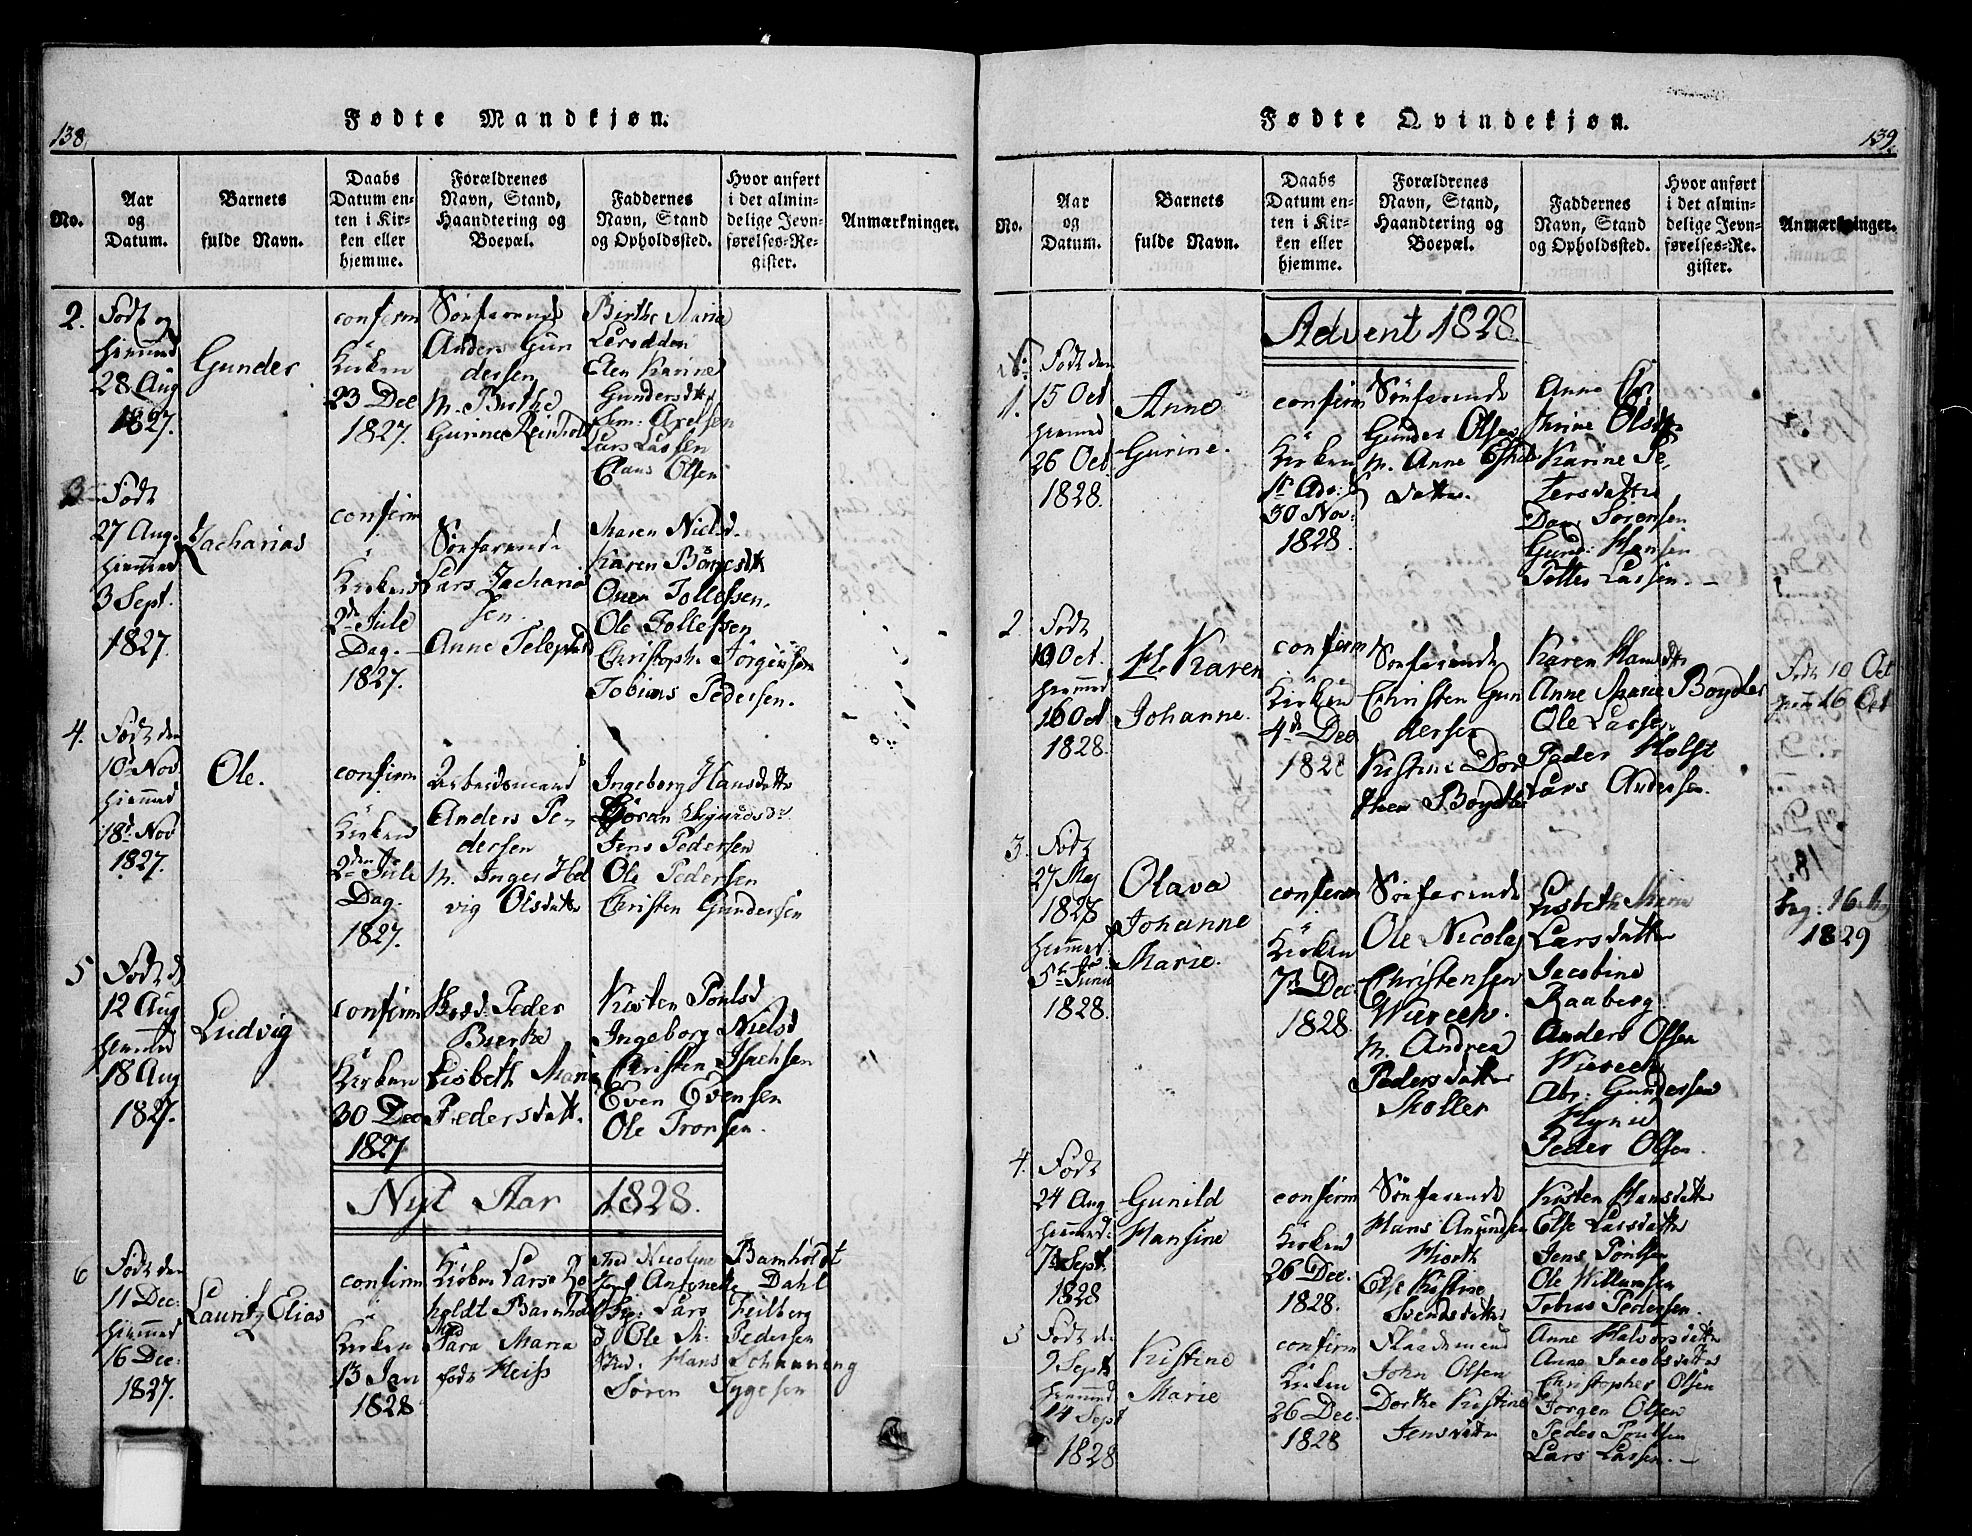 138.
Fødte Mandkjøn.
No.
Aar
og
Datum.
Barnets
fulde Navn.
Daabs
Datum en-
ten i Kir-
ken eller
hjemme.
Forældrenes
Navn, Stand,
Haandtering og
Boepæl.
Faddernes
Navn, Stand
og Opholdssted.
Hvor anført
i det almin-
delige Jevn-
førelses-Re-
gister.
Anmærkninger.
2.
Født og
hiemmed
28 Aug
1827.
Gunder
confirm
i
Kirken
23 Dec
1827.
Søefarende
Anders Gun
dersen
M. Birthe
Gurine Reinhold
Birthe Maria
Elen Karine
Gundersdtt
Lars Lassen
Claus Olsen
3
Født
27 Aug.
hiemmed
3 Sept.
1827.
Zacharias
confirm
i
Kirken
2den Jule
Dag.
1827.
Søefarende
Lars Zacharia
sen.
Anne
Maren Nielsd.
Karen
Tollefsen.
Ole Tollefsen
Christoph. Jørgensen
Tobias Pedersen.
4.
Født den
10 Nov
hiemmed
18d Nov
1827.
Ole.
confirm
i
Kirken
2den Jule
Dag.
1827.
Arbeidsmand
Anders Pe-
dersen
M. Inger Hel
vig Olsdatter
Ingeborg Hansdatter
Jens Pedersen
Ole Pedersen
Christen Gundersen
5
Født d
12 Aug
hiemmed
18 Aug
1827.
Ludvig
confirm
i
Kirken
30 Dec
1827
Peder
Bierke
Lisbeth Maria
Pedersdatt.
Kirsten Poulsd
Ingeborg Nielsd
Christen Isachsen
Even Evensen
Ole Tronsen.
Nyt Aar 1828.
6
Født den
11 Dec:
hiemmed
16 Dec:
1827.
Lauritz Elias
confirm
i
Kirken
13 Jan
1828
Lars
holdt Barnholdt
Sara Maria
født Heiss
Nicoline Barnholdt
Antonette Dahl
Lars Feilberg
Ole M. Pedersen
Hans Schanning
Søren Tygesen
139.
Fødte Qvindekjøn.
No.
Aar
og
Datum.
Barnets
fulde Navn.
Daabs
Datum en-
ten i Kir-
ken eller
hjemme.
Forældrenes
Navn, Stand,
Haandtering og
Boepæl.
Faddernes
Navn, Stand
og Opholdssted.
Hvor anført
i det almin-
delige Jevn-
førelses-Re-
gister.
Anmærkninger.
Advent 1828
1.
Født den
15 Oct
hiemmed
26 Oct
1828.
Anne
Gurine.
confirm
i
Kirken
30 Nov:
1828.
Søefarende
Gunder Olsen
M. Anne
datter.
Anne
Trine Olsdtr
Karine Pe-
tersdatter
Sørensen
Gund: Hansen
Lassen.
2
Født
10 Oct.
hiemmed
16 Oct
1828.
Karen
Johanne.
confirm
i
Kirken
4d Dec
1828
Søefarende
Christen Gun
dersen
Kistine Dor
thea Boydler
Karen Hansdtr
Anne Marie Boydler
Ole Larsen
Peder Holst
Lars Andersen.
Født 10 Oct
hiem 16 Oct
3.
Født
27 Maj
1828
hiemmed.
5te Juni
1828.
Olava
Johanne
Marie.
confirm
i
Kirken
7d Dec
1828.
Søefarende
Ole Nicolaj
Christensen
M. Andrea
Pedersdatter
Møller
Lisbeth Maria
Larsdatter
Jacobine
Raaberg
Anders Olsen
Abr: Gundersen
Peder Olsen.
1829
4.
Født
24 Aug
hiemmed:
7d Sept.
1828
Gunild
Hansine
confirm
i
Kirken
26 Dec.
1828.
Søefarende
Hans Amundsen
Hiorth
Else Kistine
Svendsdatter
Kirsten Hansdatter
Else Larsdatter
Jens Poulsen
Ole Willumsen
Tobias Pedersen.
5
Født d.
9 Sept
hiemmed
14 Sept
1828
Kistine
Marie
confirm
i
Kirken
26 Dec.
1828
John Olsen
Dorthe Kistine
Jensdatter
Anne Halvorsdatter
Anne Jacobsdatter
Christopher Olsen
Jørgen Olsen
Peder Poulsen
Lars Lassen.